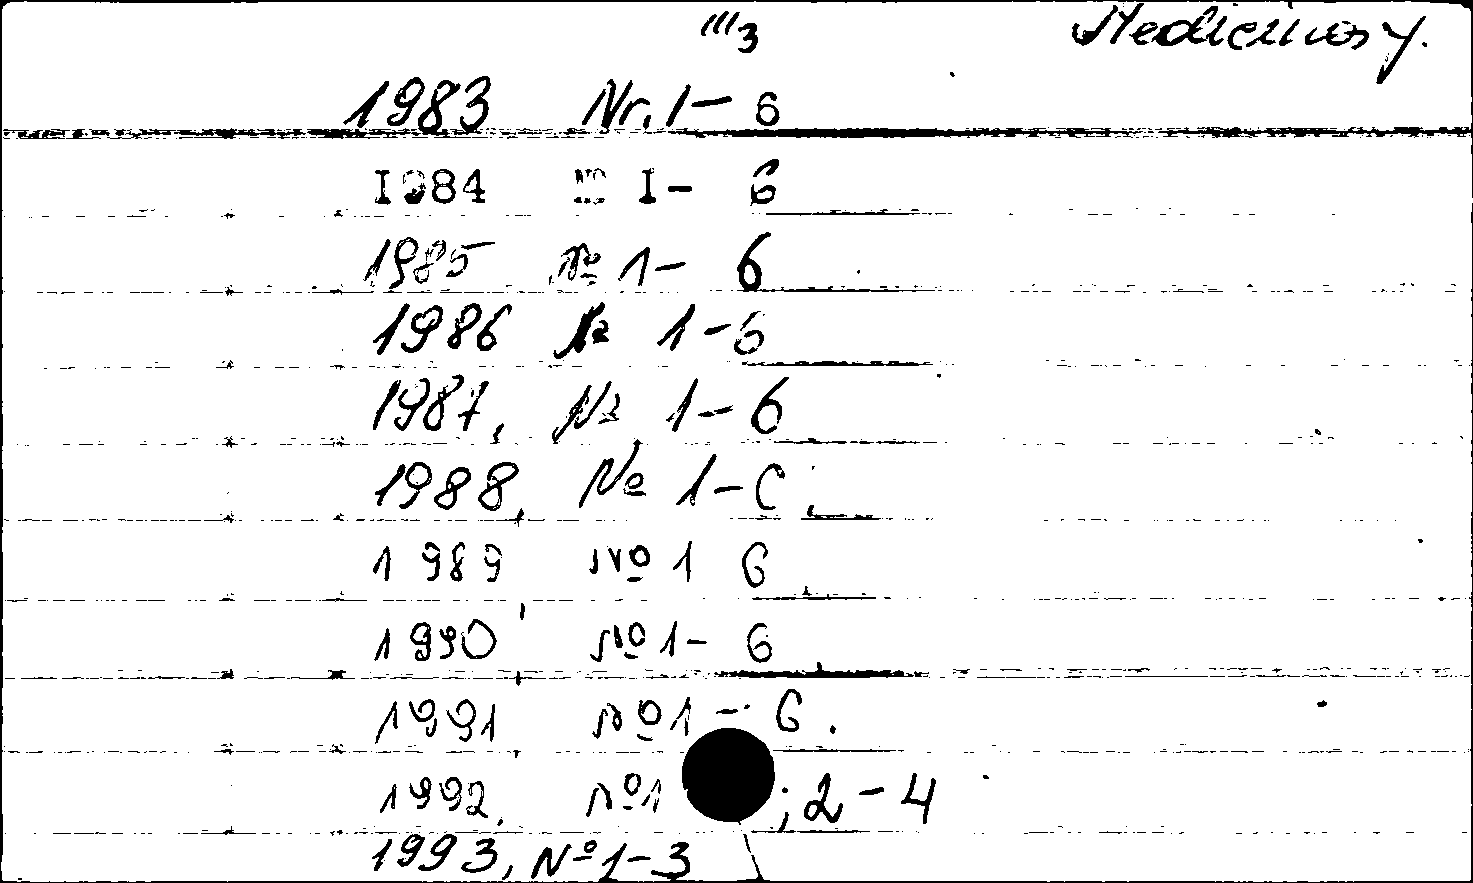 III3
1983 Nr. 1-6
I984 № I- 6
1985 № 1- 6
1986 № 1-6
1987, № 1-6
1988, № 1-6.
1989 № 1 6
1990 № 1- 6
1991 № 1 - 6.
1992, № 1 ; 2-4
1993, № 1-3